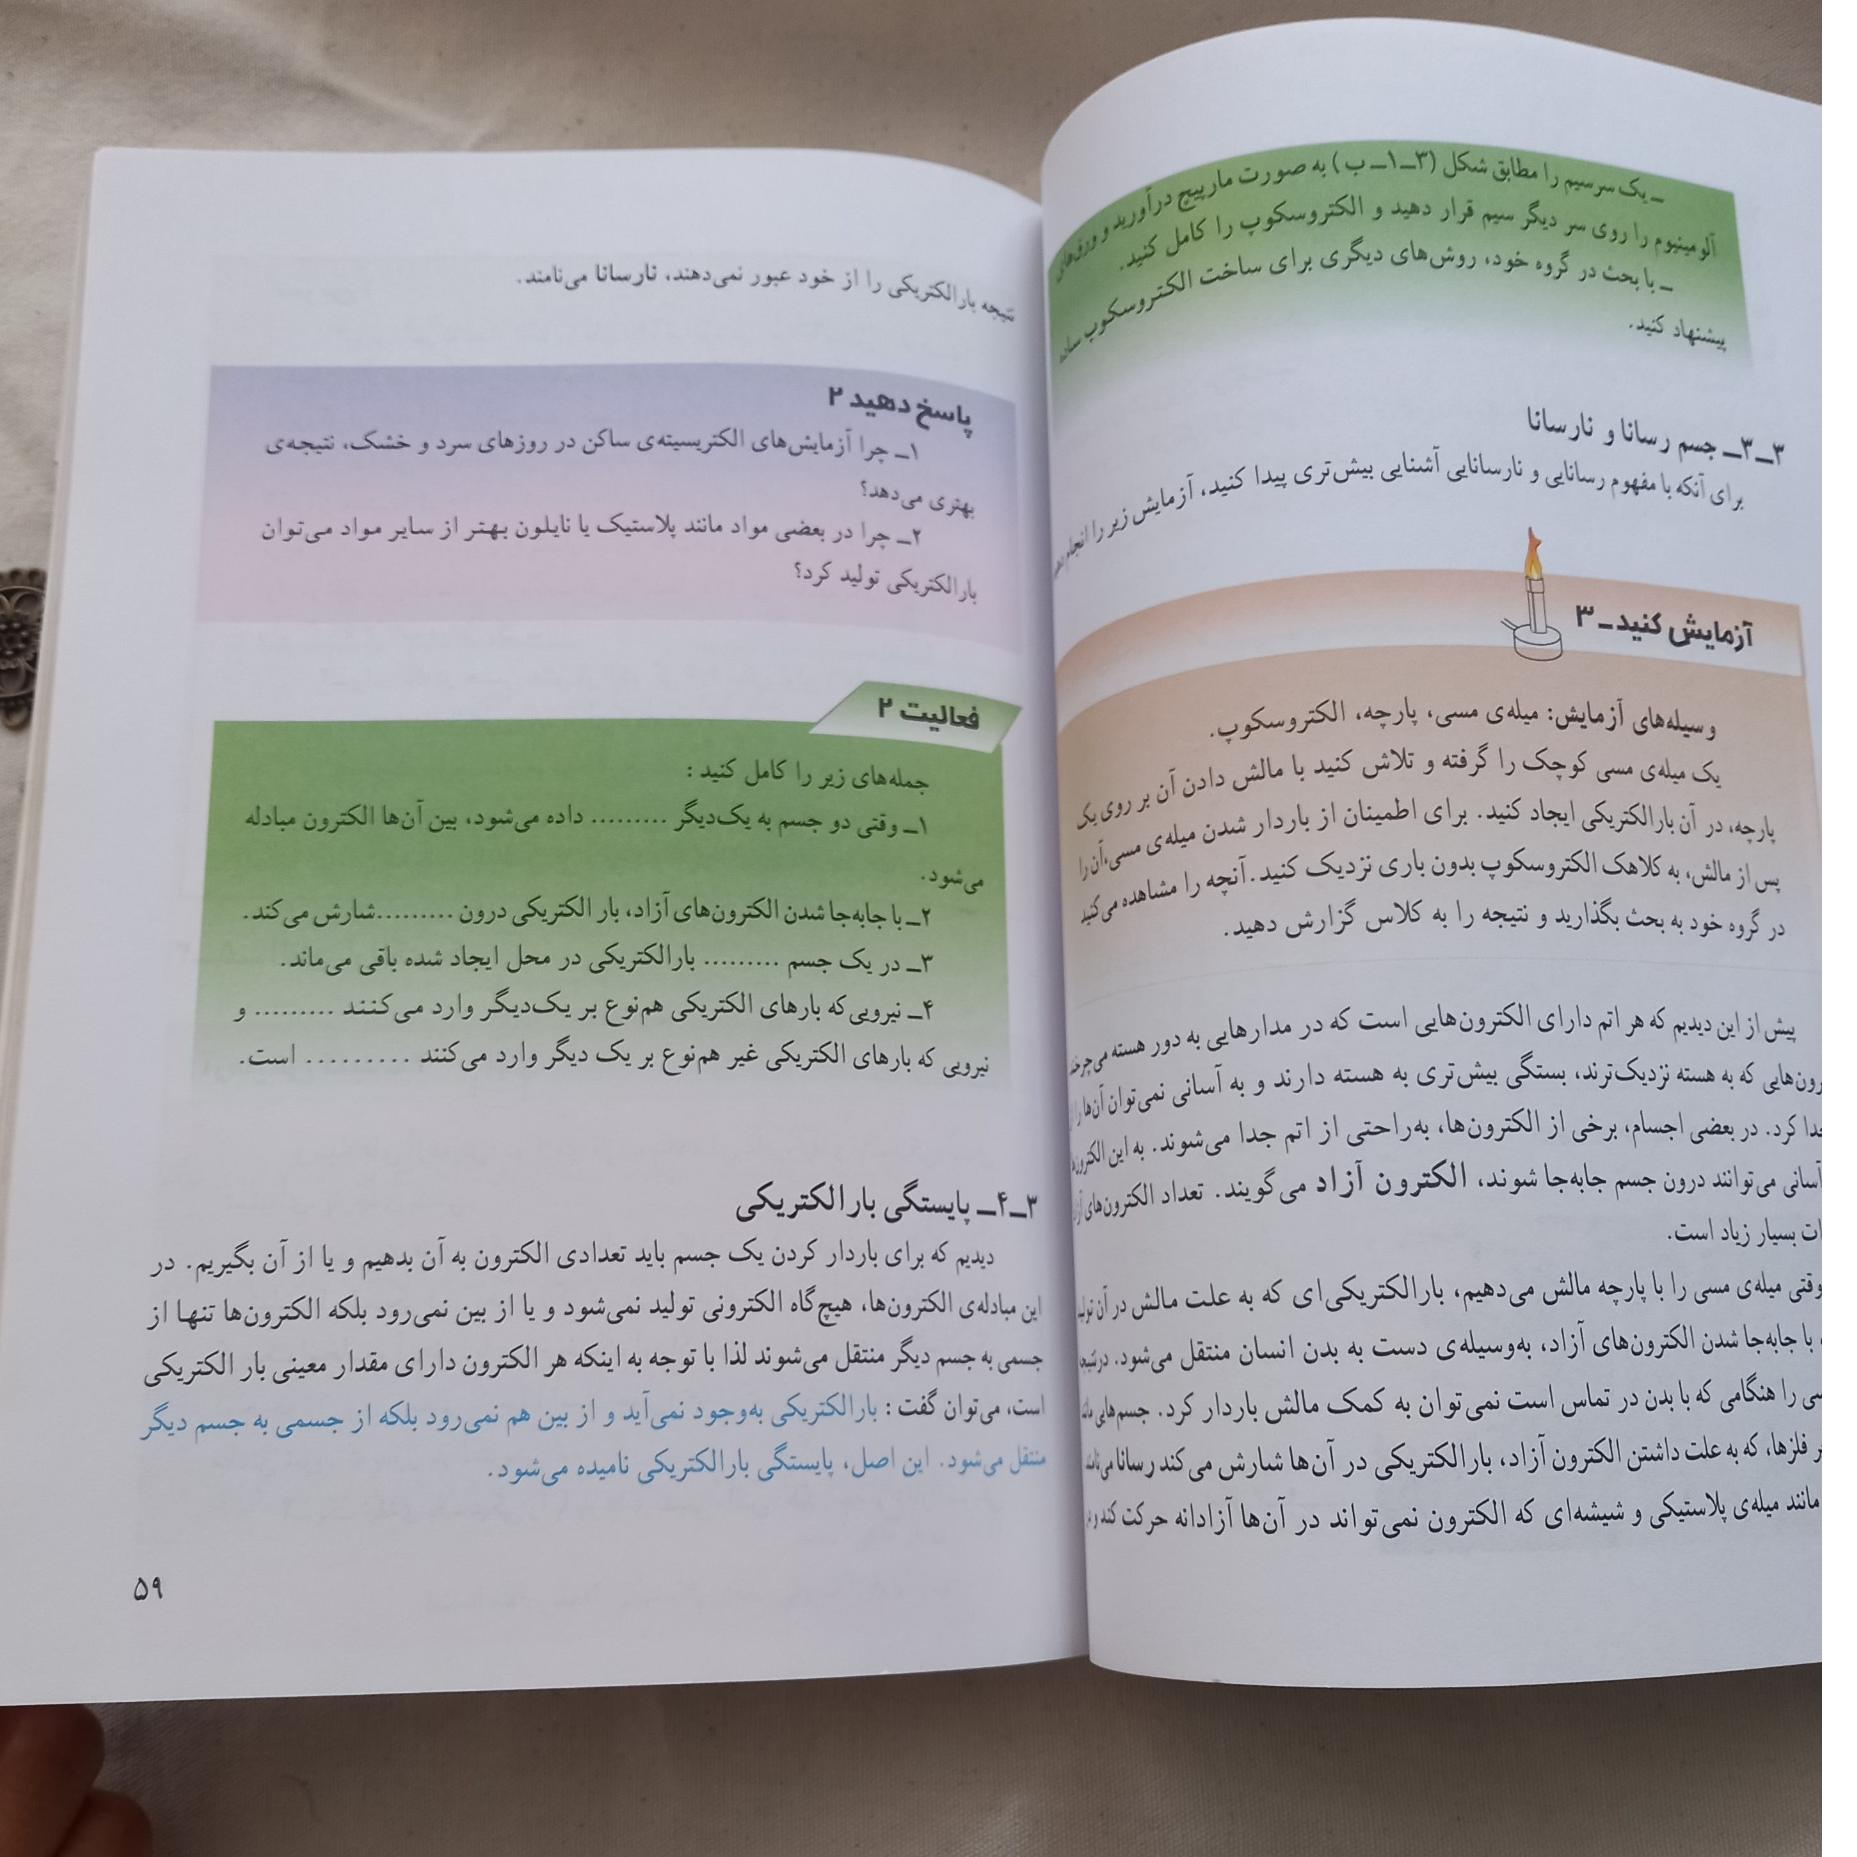 ـ یک سر سیم را مطابق شکل (۳ـ۱ـ ب) به صورت مارپیچ درآورید و ورق‌های
آلومینیوم را روی سر دیگر سیم قرار دهید و الکتروسکوپ را کامل کنید.
ـ با بحث در گروه خود، روش‌های دیگری برای ساخت الکتروسکوپ ساده
پیشنهاد کنید.
۳ـ۳ـ جسم رسانا و نارسانا
برای آنکه با مفهوم رسانایی و نارسانایی آشنایی بیش‌تری پیدا کنید، آزمایش زیر را انجام
آزمایش کنید ـ ۳
وسیله‌های آزمایش: میله‌ی مسی، پارچه، الکتروسکوپ.
یک میله‌ی مسی کوچک را گرفته و تلاش کنید با مالش دادن آن بر روی یک
پارچه، در آن بارالکتریکی ایجاد کنید. برای اطمینان از باردار شدن میله‌ی مسی،آن را
پس از مالش، به کلاهک الکتروسکوپ بدون باری نزدیک کنید. آنچه را مشاهده می‌کنید
در گروه خود به بحث بگذارید و نتیجه را به کلاس گزارش دهید.
پیش از این دیدیم که هر اتم دارای الکترون‌هایی است که در مدارهایی به دور هسته می‌چرخند
که به هسته نزدیک‌ترند، بستگی بیش‌تری به هسته دارند و به آسانی نمی‌توان آن‌ها را
کرد. در بعضی اجسام، برخی از الکترون‌ها، به‌راحتی از اتم جدا می‌شوند. به این
می‌توانند درون جسم جابه‌جا شوند، الکترون آزاد می‌گویند. تعداد الکترون‌های
بسیار زیاد است.
وقتی میله‌ی مسی را با پارچه مالش می‌دهیم، بارالکتریکی‌ای که به علت مالش در آن تولید
با جابه‌جا شدن الکترون‌های آزاد، به‌وسیله‌ی دست به بدن انسان منتقل می‌شود. درنتیجه
را هنگامی که با بدن در تماس است نمی‌توان به کمک مالش باردار کرد. جسم‌هایی
فلزها، که به علت داشتن الکترون آزاد، بارالکتریکی در آن‌ها شارش می‌کند رسانا می‌نامند
مانند میله‌ی پلاستیکی و شیشه‌ای که الکترون نمی‌تواند در آن‌ها آزادانه حرکت کند و در
نتیجه بارالکتریکی را از خود عبور نمی‌دهند، نارسانا می‌نامند.
پاسخ دهید ۲
۱ـ چرا آزمایش‌های الکتریسیته‌ی ساکن در روزهای سرد و خشک، نتیجه‌ی
بهتری می‌دهد؟
۲ـ چرا در بعضی مواد مانند پلاستیک یا نایلون بهتر از سایر مواد می‌توان
بارالکتریکی تولید کرد؟
فعالیت ۲
جمله‌های زیر را کامل کنید :
۱ـ وقتی دو جسم به یک‌دیگر ......... داده می‌شود، بین آن‌ها الکترون مبادله
می‌شود.
۲ـ با جابه‌جا شدن الکترون‌های آزاد، بار الکتریکی درون .........شارش می‌کند.
۳ـ در یک جسم ......... بارالکتریکی در محل ایجاد شده باقی می‌ماند.
۴ـ نیرویی‌که بارهای الکتریکی هم‌نوع بر یک‌دیگر وارد می‌کنند ......... و
نیرویی که بارهای الکتریکی غیر هم‌نوع بر یک دیگر وارد می‌کنند .......... است.
۳ـ۴ـ پایستگی بارالکتریکی
دیدیم که برای باردار کردن یک جسم باید تعدادی الکترون به آن بدهیم و یا از آن بگیریم. در
این مبادله‌ی الکترون‌ها، هیچ‌گاه الکترونی تولید نمی‌شود و یا از بین نمی‌رود بلکه الکترون‌ها تنها از
جسمی به جسم دیگر منتقل می‌شوند لذا با توجه به اینکه هر الکترون دارای مقدار معینی بار الکتریکی
است، می‌توان گفت : بارالکتریکی به‌وجود نمی‌آید و از بین هم نمی‌رود بلکه از جسمی به جسم دیگر
منتقل می‌شود. این اصل، پایستگی بارالکتریکی نامیده می‌شود.
۵۹